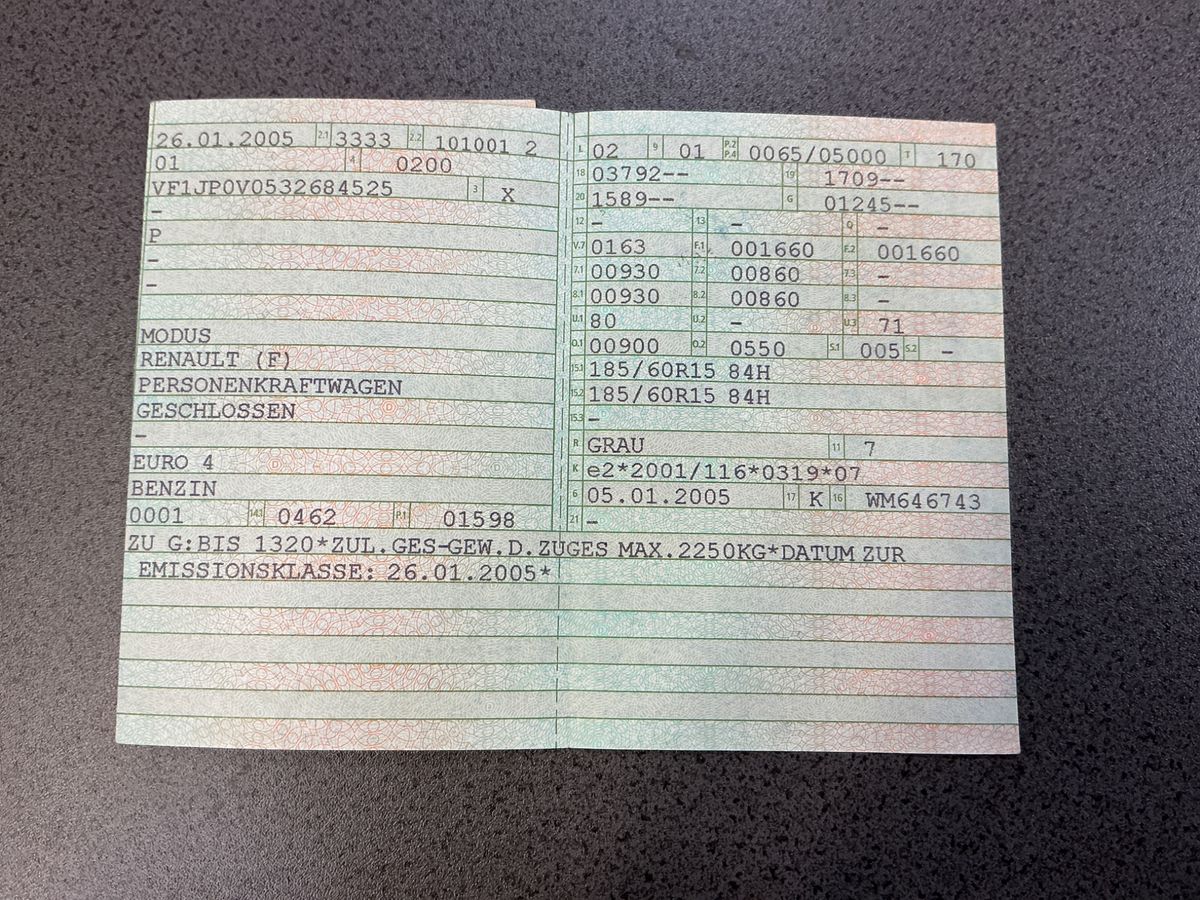 26.01.2005 2.1 3333 2.2 101001 2
01 4 0200
VF1JP0V0532684525 3 X
–
P
–
–
MODUS
RENAULT (F)
PERSONENKRAFTWAGEN
GESCHLOSSEN
–
EURO 4
BENZIN
0001 14.1 0462 P.1 01598
L 02 9 01 P.2 P.4 0065/05000 T 170
18 03792-- 19 1709--
20 1589-- G 01245--
12 – 13 – Q –
V.7 0163 F.1 001660 F.2 001660
7.1 00930 7.2 00860 7.3 –
8.1 00930 8.2 00860 8.3 –
U.1 80 U.2 – U.3 71
O.1 00900 O.2 0550 S.1 005 S.2 –
15.1 185/60R15 84H
15.2 185/60R15 84H
15.3 –
R GRAU 11 7
K e2*2001/116*0319*07
6 05.01.2005 17 K 16 WM646743
21 –
ZU G:BIS 1320*ZUL.GES-GEW.D.ZUGES MAX.2250KG*DATUM ZUR
EMISSIONSKLASSE: 26.01.2005*